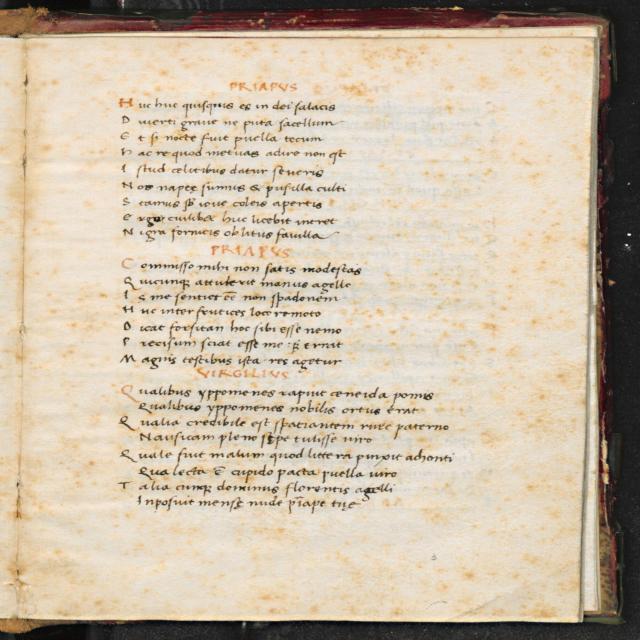 PRIAPVS
H uc huc quisquis es in dei salacis
D iuerti graue ne puta sacellum
E t si nocte fuit puella tecum
H ac re quod metuas adire non est
I stud celitibus datur seueris
N os nape sumus & pusilla culti
S tamus sub ioue coleis apertis
E rgo cuilibet huc licebit intret
N igra fornicis oblitus fauilla
PRIAPVS
C ommisso mihi non satis modestas
Q uicunque attulerit manus agello
I s me sentiet esse non spadonem
H uc inter frutices loco remoto
D icat forsitan hoc sibi esse nemo
P recisum sciat esse me
M agnis testibus ista res agetur
VIRGILIVS
Q ualibus yppomenes rapuit ceneida pomis
Qualibus yppomenes nobilis ortus erat
Q ualia credibile est spatiantem rure paterno
Nausicam pleno sepe tulisse uiro
Q uale fuit malum quod littera pinxit achonti
Qua lecta est cupido pacta puella uiro
T alia cunque dominus florentis agelli
Inposuit mense nude priape tue